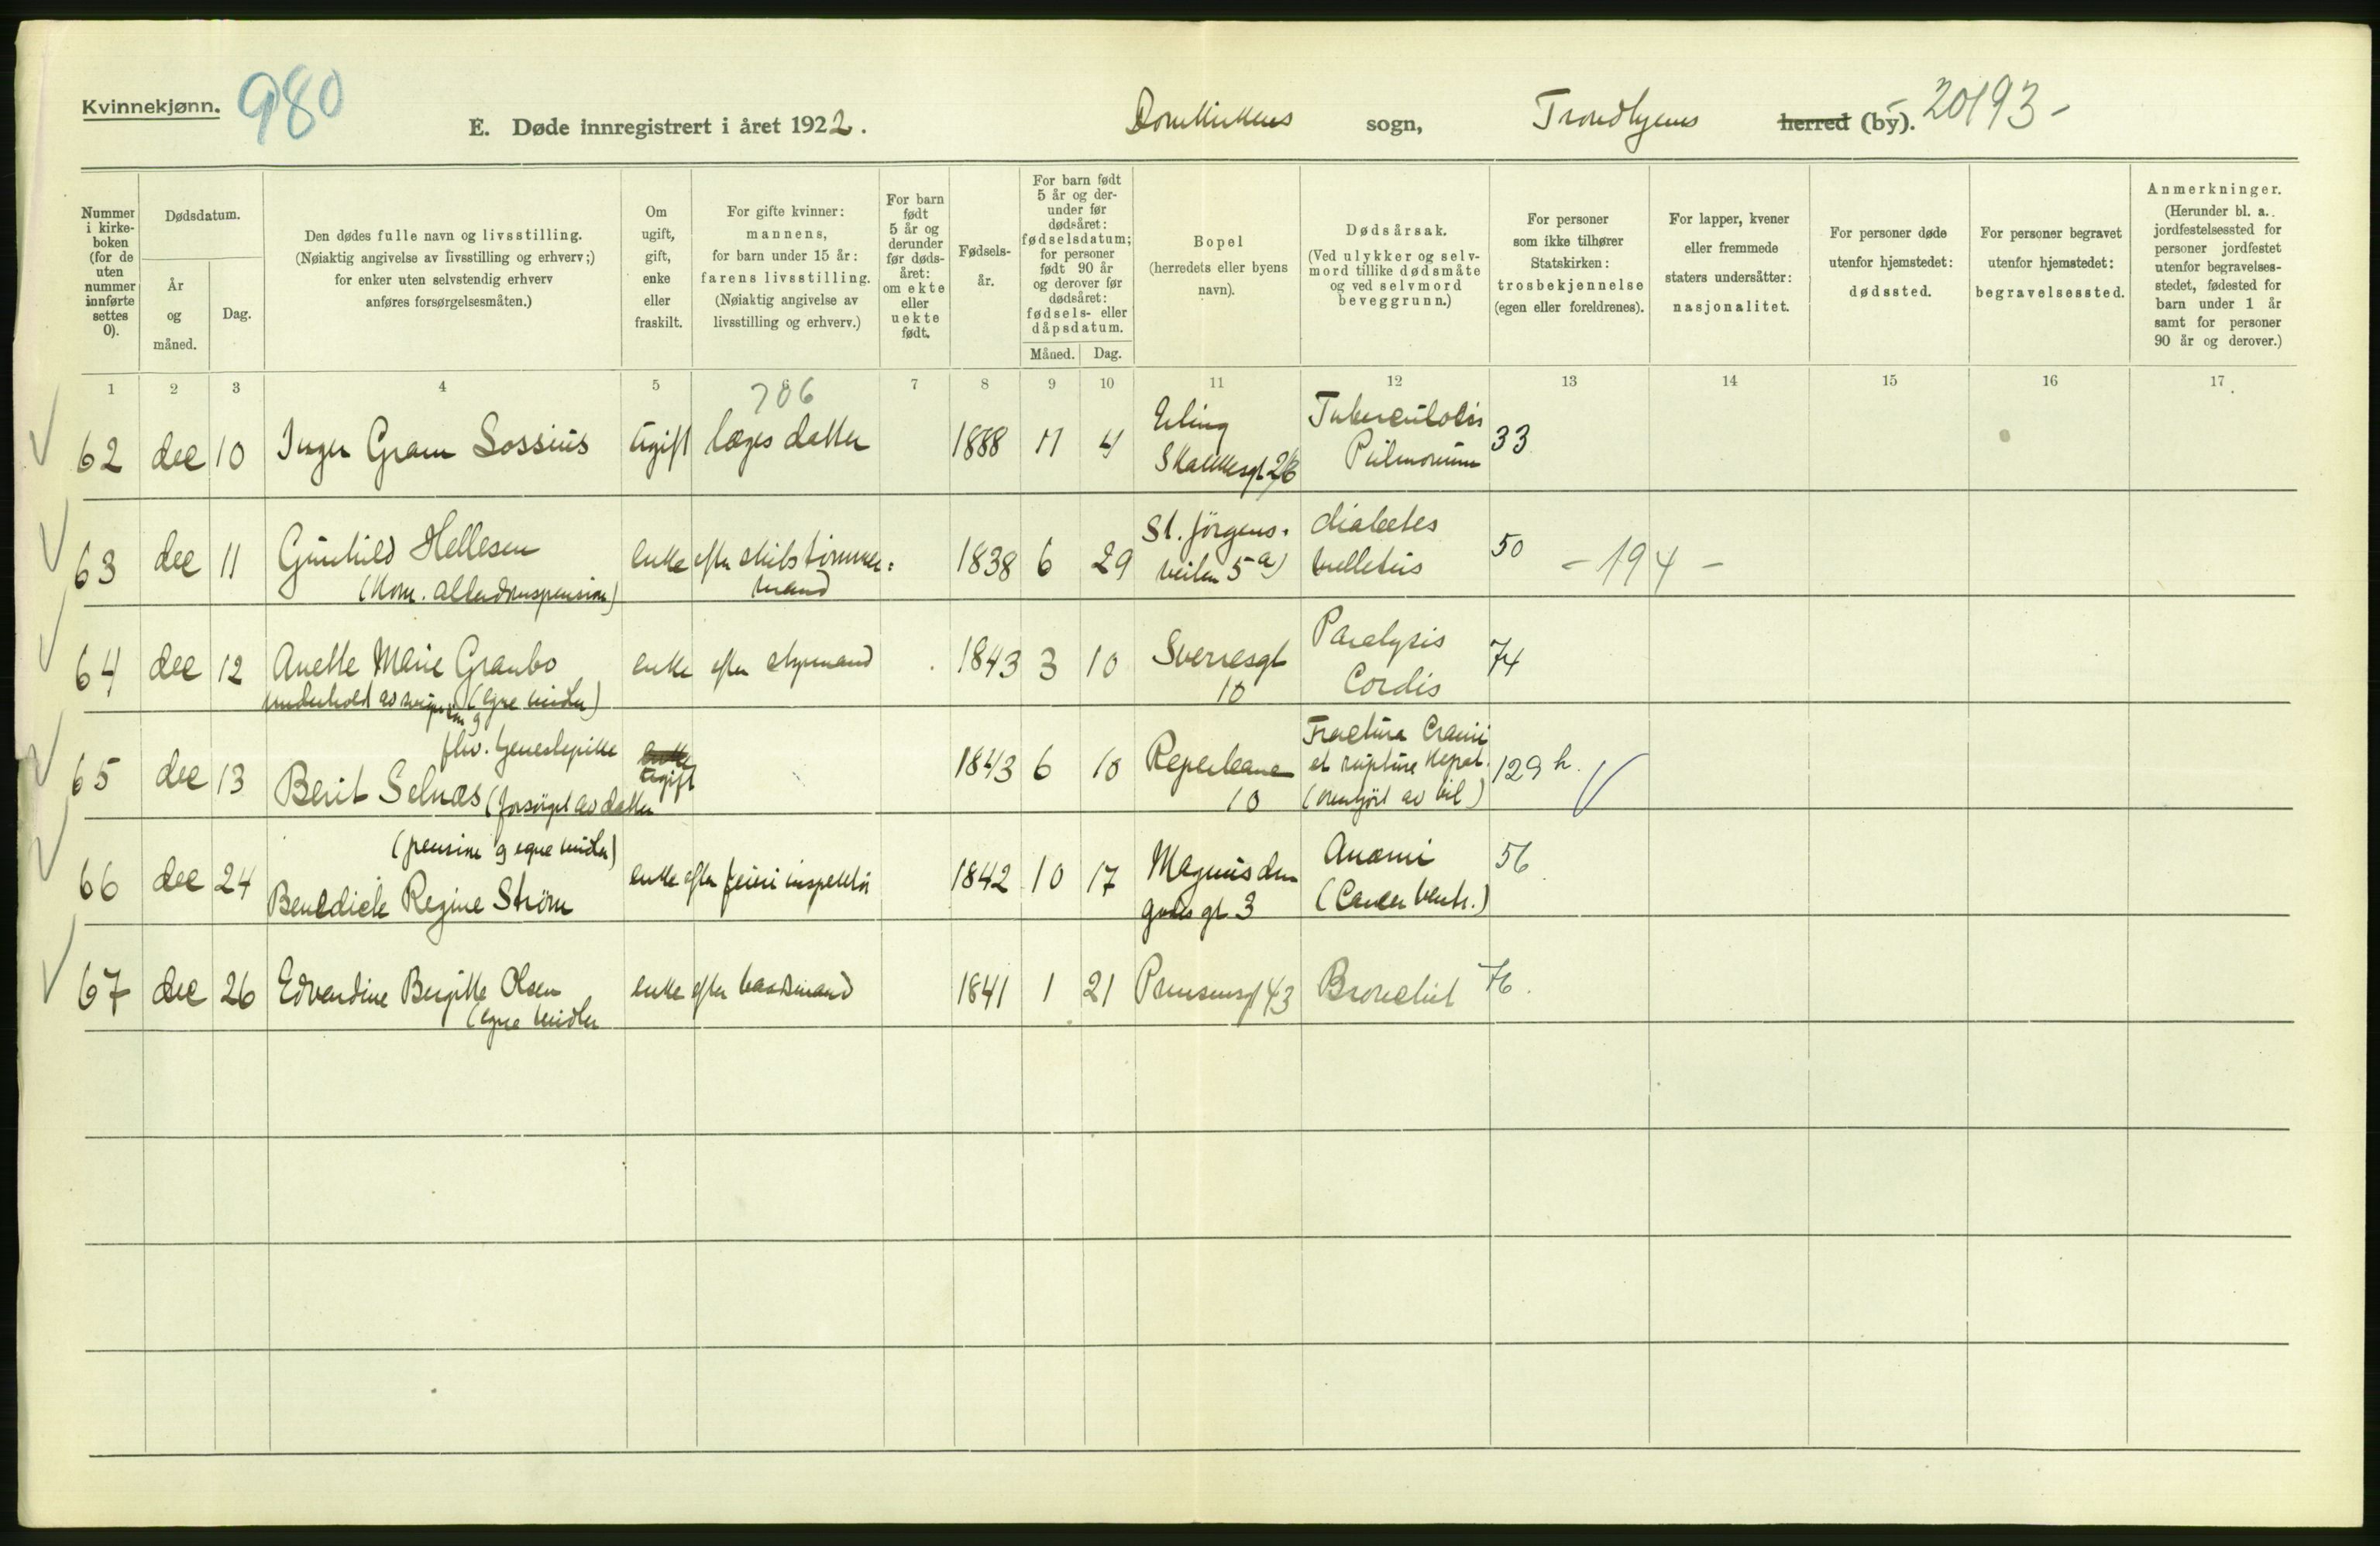 Kvinnekjønn.
980
E. Døde innregistrert i året 1922.
Domkirkens sogn, Trondhjems herred (by). 20193-
Nummer i kirke-boken (for de uten nummer innførte settes 0).
Dødsdatum.
År og måned.
Dag.
Den dødes fulle navn og livsstilling.
(Nøiaktig angivelse av livsstilling og erhverv;)
for enker uten selvstendig erhverv
anføres forsørgelsesmåten.)
Om ugift, gift, enke eller fraskilt.
For gifte kvinner: mannens, for barn under 15 år: farens livsstilling. (Nøiaktig angivelse av livsstilling og erhverv.)
For barn født 5 år og derunder før døds-året: om ekte eller uekte født.
Fødsels-år.
For barn født 5 år og der-under før dødsåret: fødselsdatum; for personer født 90 år og derover før dødsåret: fødsels- eller dåpsdatum.
Måned. Dag.
Bopel (herredets eller byens navn).
Dødsårsak. (Ved ulykker og selv-mord tillike dødsmåte og ved selvmord beveggrunn.)
For personer som ikke tilhører Statskirken: trosbekjennelse (egen eller foreldrenes).
For lapper, kvener eller fremmede staters undersåtter: nasjonalitet.
For personer døde utenfor hjemstedet: dødssted.
For personer begravet utenfor hjemstedet: begravelsessted.
Anmerkninger. (Herunder bl. a. jordfestelsessted for personer jordfestet utenfor begravelses-stedet, fødested for barn under 1 år samt for personer 90 år og derover.)
1 2 3 4 5 6 7 8 9 10 11 12 13 14 15 16 17
706
62 dec 10 Inger Gram Sossius ugift læges datter 1888 11 4 Erling Skakkesgt 26 Tuberculosis Pulmonum 33
63 dec 11 Gunhild Hellesen enke efter skibstømmer=
(Kom. alderdomspension) mand 1838 6 29 St. Jörgens-veien 5 a) diabetes mellitus 50 - 194 -
64 dec 12 Anette Marie Granbo enke efter styrmand 1843 3 10 Sverresgt 10 Paralysis Cordis 74
underhold av (egne midler)
65 dec 13 fhv. tjenestepike
Berit Selnæs (forsörget av datter enke ugift 1843 6 10 Reperbanen 10 Fractura Cranii et rupture Hepat. (overkjört av bil) 129 h.
66 dec 24 (pension og egne midler)
Benedicte Regine Strøm enke efter feieriinspektör 1842 10 17 Magnus den godes gt 3 Anæmi (Cancer ventr.) 56
67 dec 26 Edvardine Bergitte Olsen enke efter baadsmand 1841 1 21 Prinsensgt 43 Bronchit 76.
(egne midler